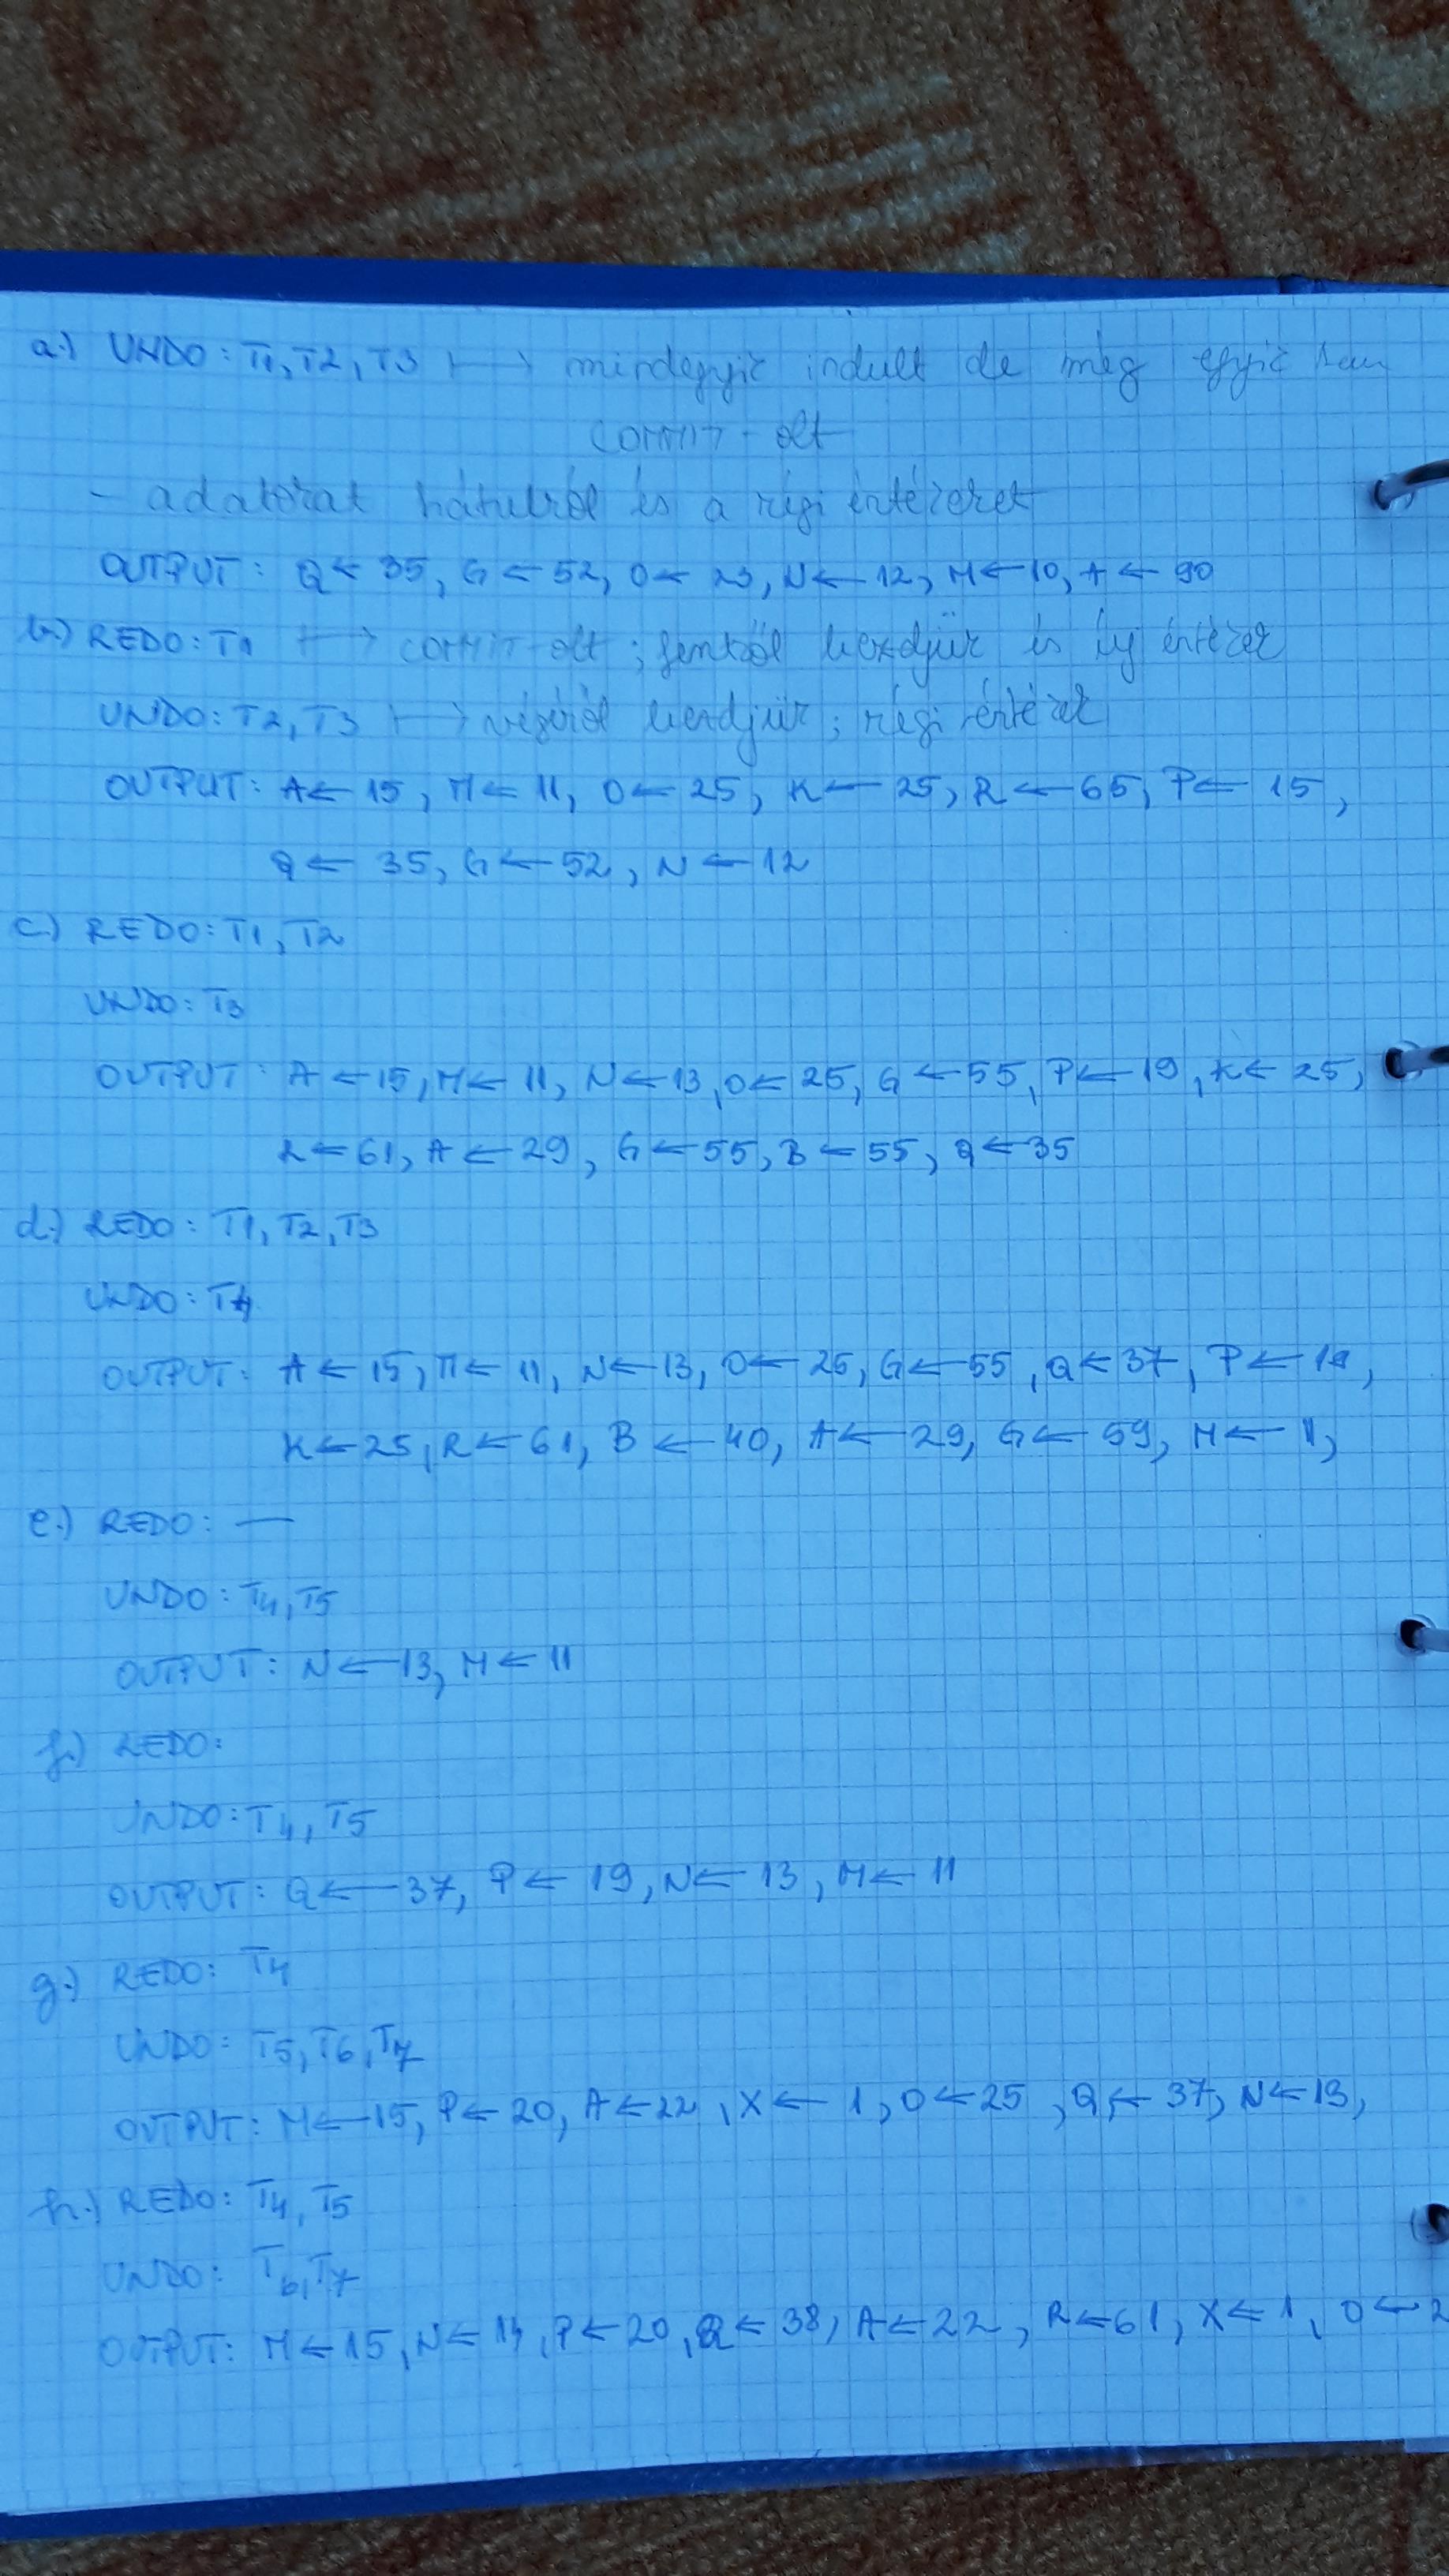 a.) UNDO: T1, T2, T3 ↦ mindegyik indult de még egyik sem
commit-olt
- adatokat hátulról és a régi értékeket
OUTPUT: Q ← 35, G ← 52, O ← 23, N ← 12, M ← 10, A ← 90
b.) REDO: T1 ↦ commit-olt; fentről kezdjük és új érték
UNDO: T2, T3 ↦ végéről kezdjük; régi érték
OUTPUT: A ← 15, M ← 11, O ← 25, K ← 25, R ← 65, P ← 15,
Q ← 35, G ← 52, N ← 12
c.) REDO: T1, T2
UNDO: T3
OUTPUT: A ← 15, M ← 11, N ← 13, O ← 25, G ← 55, P ← 19, K ← 25,
R ← 61, A ← 29, G ← 55, B ← 55, Q ← 35
d.) REDO: T1, T2, T3
UNDO: T4
OUTPUT: A ← 15, M ← 11, N ← 13, O ← 25, G ← 55, Q ← 37, P ← 19,
K ← 25, R ← 61, B ← 40, A ← 29, G ← 59, M ← 11,
e.) REDO: —
UNDO: T4, T5
OUTPUT: N ← 13, M ← 11
f.) REDO:
UNDO: T4, T5
OUTPUT: Q ← 37, P ← 19, N ← 13, M ← 11
g.) REDO: T4
UNDO: T5, T6, T7
OUTPUT: M ← 15, P ← 20, A ← 22, X ← 1, O ← 25, Q ← 37, N ← 13,
h.) REDO: T4, T5
UNDO: T6, T7
OUTPUT: M ← 15, N ← 14, P ← 20, Q ← 38, A ← 22, R ← 61, X ← 1, O ← 2